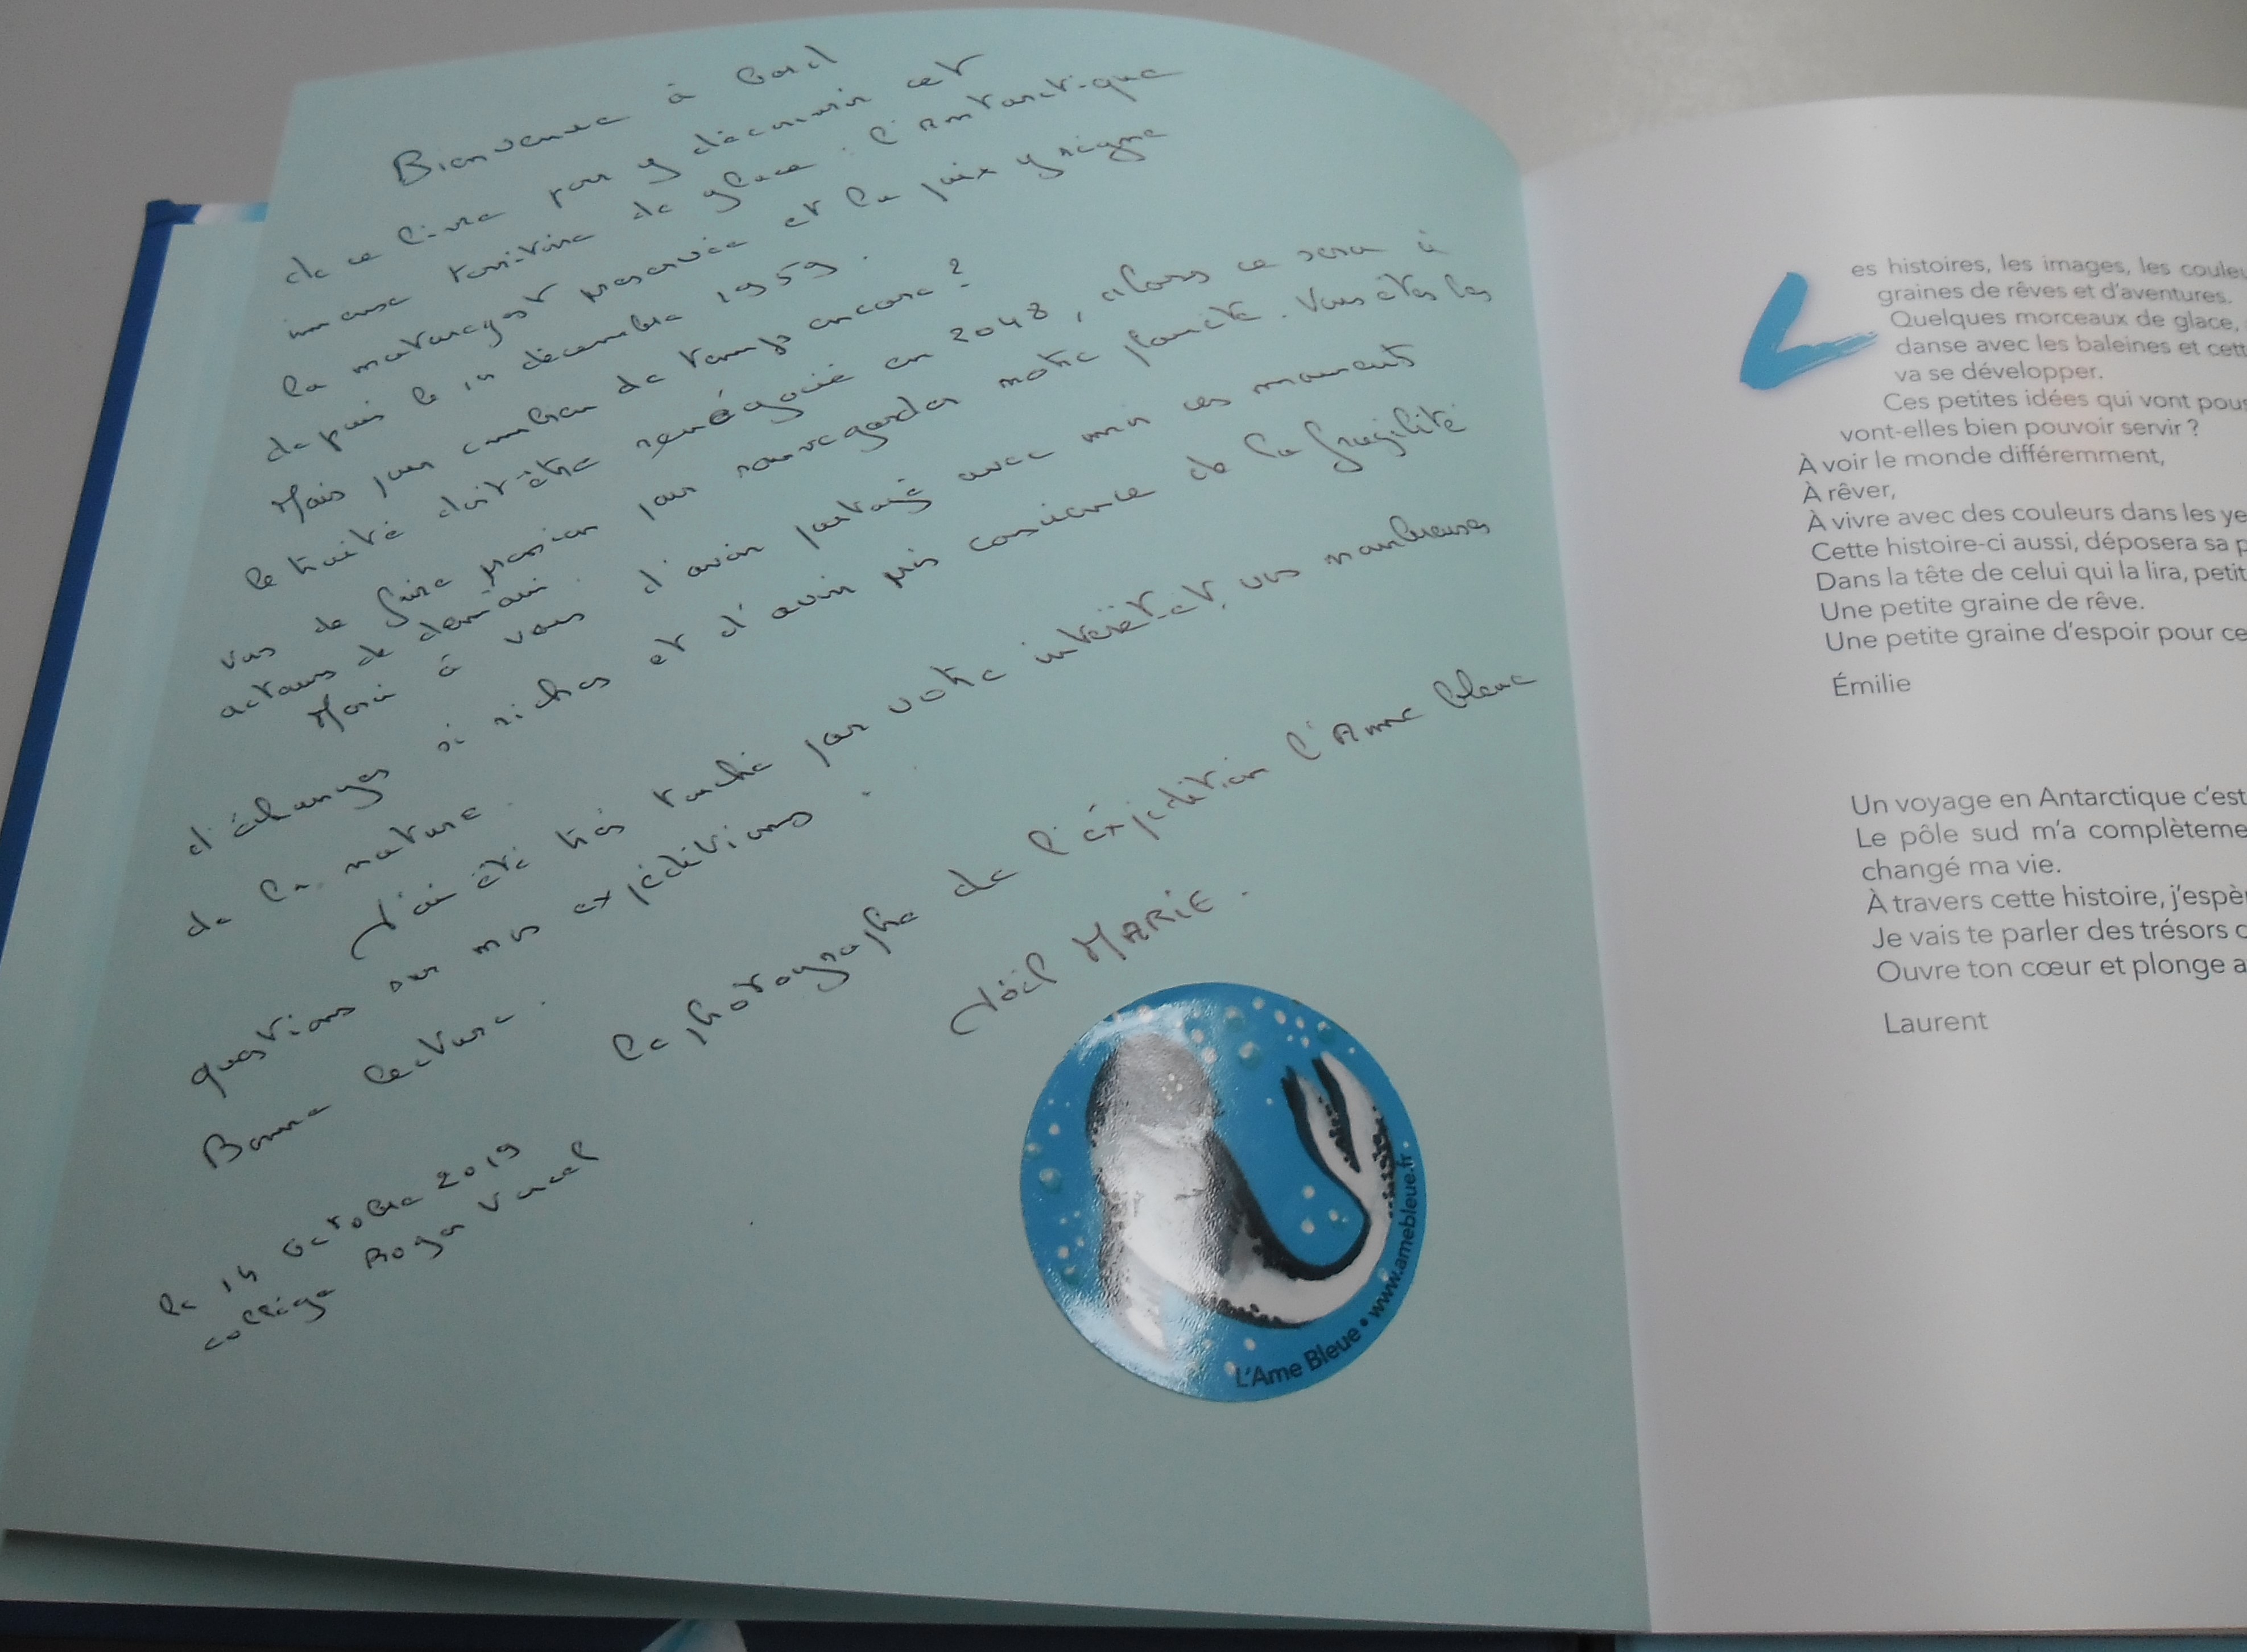 Bienvenue à bord
de ce livre pour y découvrir cet
immense territoire de glace : l'Antarctique
la nature y est préservée et la paix y règne
depuis le 1er décembre 1959.
Mais pour combien de temps encore ?
le traité doit être renégocié en 2048, alors ce sera à
vous de faire pression pour sauvegarder notre planète. Vous êtes les
acteurs de demain.
Merci à vous d'avoir partagé avec moi ces moments
d'échanges si riches et d'avoir pris conscience de la fragilité
de la nature.
J'ai été très touché par votre intérêt et vos nombreuses
questions sur mes expéditions.
Bonne lecture.
le photographe de l'éxpédition l'Ame bleue
Noël MARIE.
le 14 octobre 2019
collège Roger Vercel
L'Ame Bleue • www.amebleue.fr
Les histoires, les images, les couleu
graines de rêves et d'aventures.
Quelques morceaux de glace,
danse avec les baleines et cett
va se développer.
Ces petites idées qui vont pous
vont-elles bien pouvoir servir ?
À voir le monde différemment,
À rêver,
À vivre avec des couleurs dans les ye
Cette histoire-ci aussi, déposera sa p
Dans la tête de celui qui la lira, petit
Une petite graine de rêve.
Une petite graine d'espoir pour ce
Émilie
Un voyage en Antarctique c'est
Le pôle sud m'a complèteme
changé ma vie.
À travers cette histoire, j'espèr
Je vais te parler des trésors c
Ouvre ton cœur et plonge a
Laurent